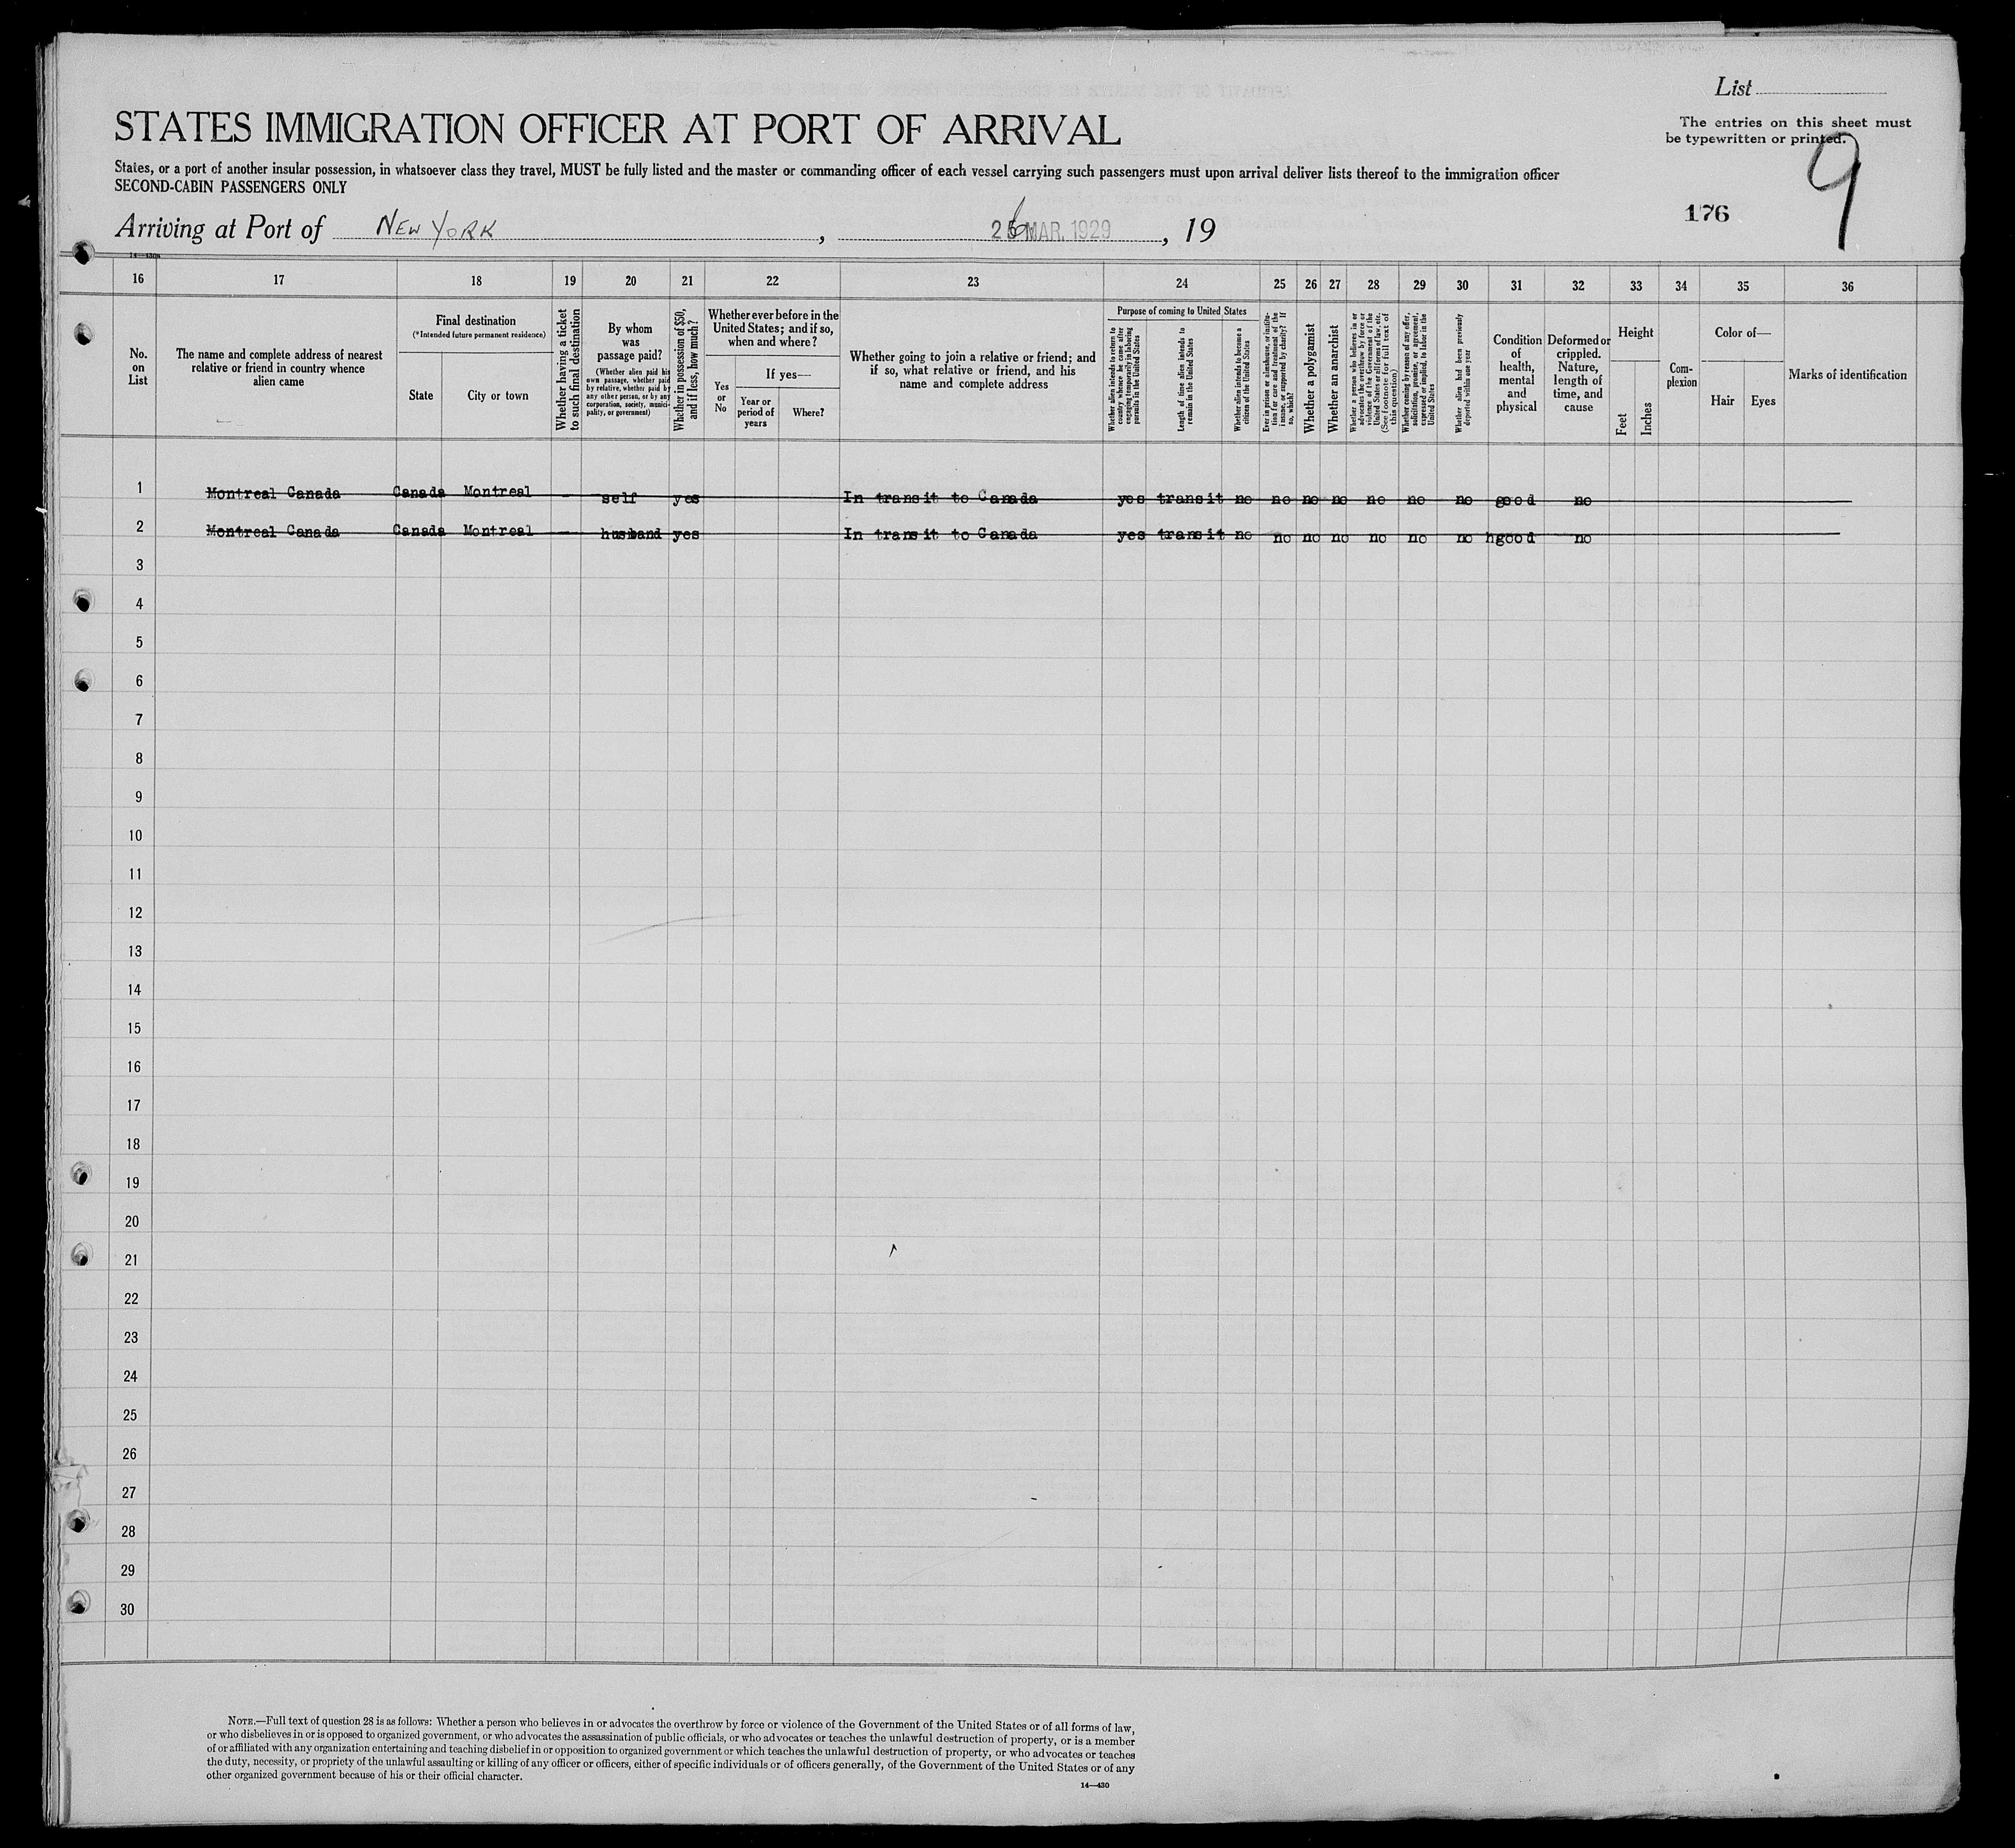 List
STATES IMMIGRATION OFFICER AT PORT OF ARRIVAL
The entries on this sheet must
be typewritten or printed.
9
States, or a port of another insular possession, in whatsoever class they travel, MUST be fully listed and the master or commanding officer of each vessel carrying such passengers must upon arrival deliver lists thereof to the immigration officer
SECOND-CABIN PASSENGERS ONLY
176
Arriving at Port of NEW YORK, 26 MAR. 1929, 19
16 17 18 19 20 21 22 23 24 25 26 27 28 29 30 31 32 33 34 35 36
No.
on
List
The name and complete address of nearest
relative or friend in country whence
alien came
Final destination
(*Intended future permanent residence)
State
City or town
Whether having a ticket
to such final destination
By whom
was
passage paid?
(Whether alien paid his
own passage, whether paid
by relative, whether paid by
any other person, or by any
corporation, society, munici-
pality, or government)
Whether in possession of $50,
and if less, how much?
Whether ever before in the
United States; and if so,
when and where?
Yes
or
No
If yes—
Year or
period of
years
Where?
Whether going to join a relative or friend; and
if so, what relative or friend, and his
name and complete address
Purpose of coming to United States
Whether alien intends to return to
country whence he came after
engaging temporarily in laboring
pursuits in the United States
Length of time alien intends to
remain in the United States
Whether alien intends to become a
citizen of the United States
Ever in prison or almshouse, or institu-
tion for care and treatment of the
insane, or supported by charity? If
so, which?
Whether a polygamist
Whether an anarchist
Whether a person who believes in or
advocates the overthrow by force or
violence of the Government of the
United States or all forms of law, etc.
(See footnote for full text of
this question)
Whether coming by reason of any offer,
solicitation, promise, or agreement,
expressed or implied, to labor in the
United States
Whether alien had been previously
deported within one year
Condition
of
health,
mental
and
physical
Deformed or
crippled.
Nature,
length of
time, and
cause
Height
Feet
Inches
Com-
plexion
Color of—
Hair
Eyes
Marks of identification
1 Montreal Canada Canada Montreal self yes In transit to Canada yes transit no no no no no no no good no
2 Montreal Canada Canada Montreal husband yes In transit to Canada yes transit no no no no no no no hgood no
3
4
5
6
7
8
9
10
11
12
13
14
15
16
17
18
19
20
21
22
23
24
25
26
27
28
29
30
NOTE.—Full text of question 28 is as follows: Whether a person who believes in or advocates the overthrow by force or violence of the Government of the United States or of all forms of law,
or who disbelieves in or is opposed to organized government, or who advocates the assassination of public officials, or who advocates or teaches the unlawful destruction of property, or is a member
of or affiliated with any organization entertaining and teaching disbelief in or opposition to organized government or which teaches the unlawful destruction of property, or who advocates or teaches
the duty, necessity, or propriety of the unlawful assaulting or killing of any officer or officers, either of specific individuals or of officers generally, of the Government of the United States or of any
other organized government because of his or their official character.
14—430